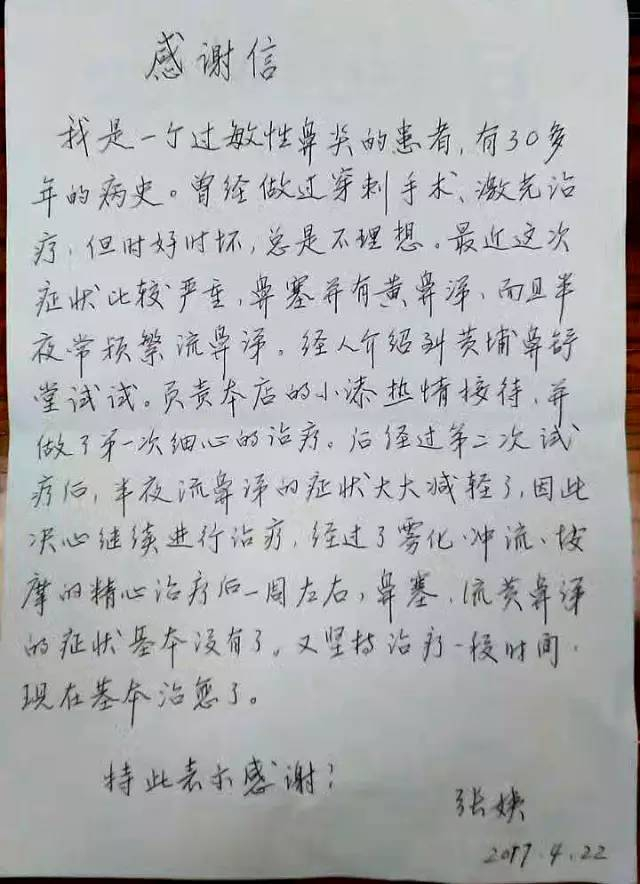 感谢信
我是一个过敏性鼻炎的患者，有30多
年的病史。曾经做过穿刺手术、激光治
疗，但时好时坏，总是不理想。最近这次
症状比较严重，鼻塞并有黄鼻涕，而且半
夜常频繁流鼻涕。经人介绍到黄埔鼻舒
堂试试。负责本店的小漆热情接待，并
做了第一次细心的治疗。后经过第二次试
疗后，半夜流鼻涕的症状大大减轻了，因此
决心继续进行治疗，经过了雾化、冲流、按
摩的精心治疗后一周左右，鼻塞、流黄鼻涕
的症状基本没有了。又坚持治疗一段时间，
现在基本治愈了。
特此表示感谢！
张姨
2017.4.22